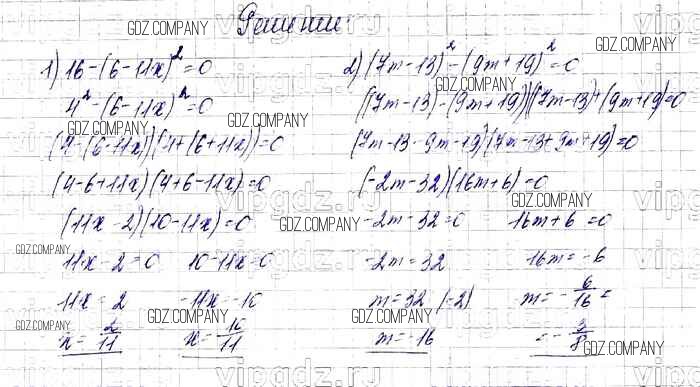 Решение:
1) 16-(6-11x)²=0
4²-(6-11x)²=0
(4-(6-11x))(4+(6+11x))=0
(4-6+11x)(4+6-11x)=0
(11x-2)(10-11x)=0
11x-2=0 10-11x=0
11x=2 -11x=-10
x=2/11 x=10/11
2) (7m-13)²-(9m+19)²=0
((7m-13)-(9m+19))((7m-13)+(9m+19))=0
(7m-13-9m-19)(7m-13+9m+19)=0
(-2m-32)(16m+6)=0
-2m-32=0 16m+6=0
-2m=32 16m=-6
m=32:(-2) m=-6/16=
m=-16 =-3/8
GDZ.COMPANY
GDZ.COMPANY
GDZ.COMPANY
GDZ.COMPANY
GDZ.COMPANY
GDZ.COMPANY
GDZ.COMPANY
GDZ.COMPANY
GDZ.COMPANY
GDZ.COMPANY
GDZ.COMPANY
GDZ.COMPANY
GDZ.COMPANY
vipgdz.ru
vipgdz.ru
vipgdz.ru
vipgdz.ru